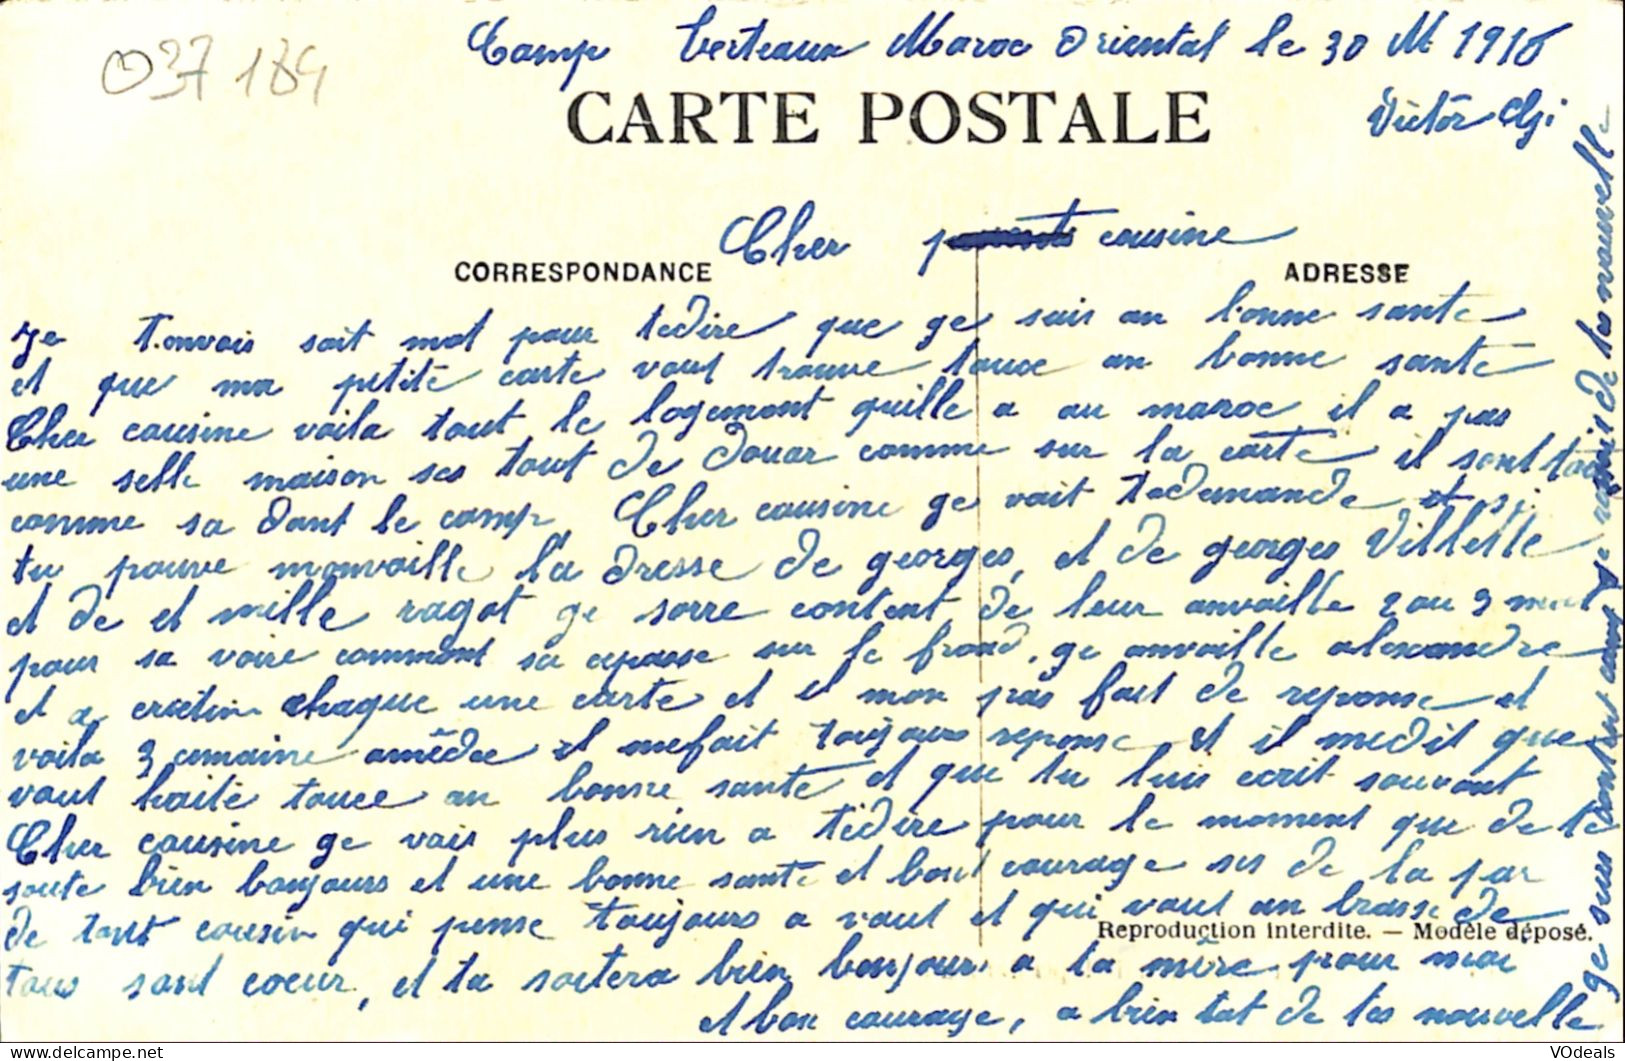 037184
Camp Berteaux Maroc Oriental le 30 M 1916
CARTE POSTALE
Victor
Cher cousine
CORRESPONDANCE
ADRESSE
Je t.envois sait mot pour tedire que ge suis an bonne sante
et que ma petite carte vout trouve touce an bonne sante
Cher cousine voila tout le logemont quille a au maroc il a pas
une selle maison ses tout de douar comme sur la carte il sont tout
comme sa dant le camp, Cher cousine ge vait tedemande si
tu pouve monvoille la dresse de georges, et de georges Villette
et de et mille ragot ge sorre content de leur anvoille 2 ou 3 mot
pour sa voire commont sa cepasse sur le froad, ge anvoille alexandre
et a cristin chaque une carte et il mon pas fait de reponse et
voila 3 cemaine amédee il mefait toujours reponse et il medit que
vout haite touce an bonne sante et que tu luis ecrit souvant
Cher cousine ge vais plus rien a tedire pour le moment que de te
soute bien bonjours et une bonne sante et bont courage ses de la par
de tont cousin qui pense toujours a vout et qui vout an brasse de
Reproduction interdite. — Modèle déposé.
tous sont coeur, et ta soitera bien bonjours a ta mère pour moi
et bon courage, a bien tot de tes nouvelle
ge suis contant cant ge de tes nouvelle
VOdeals